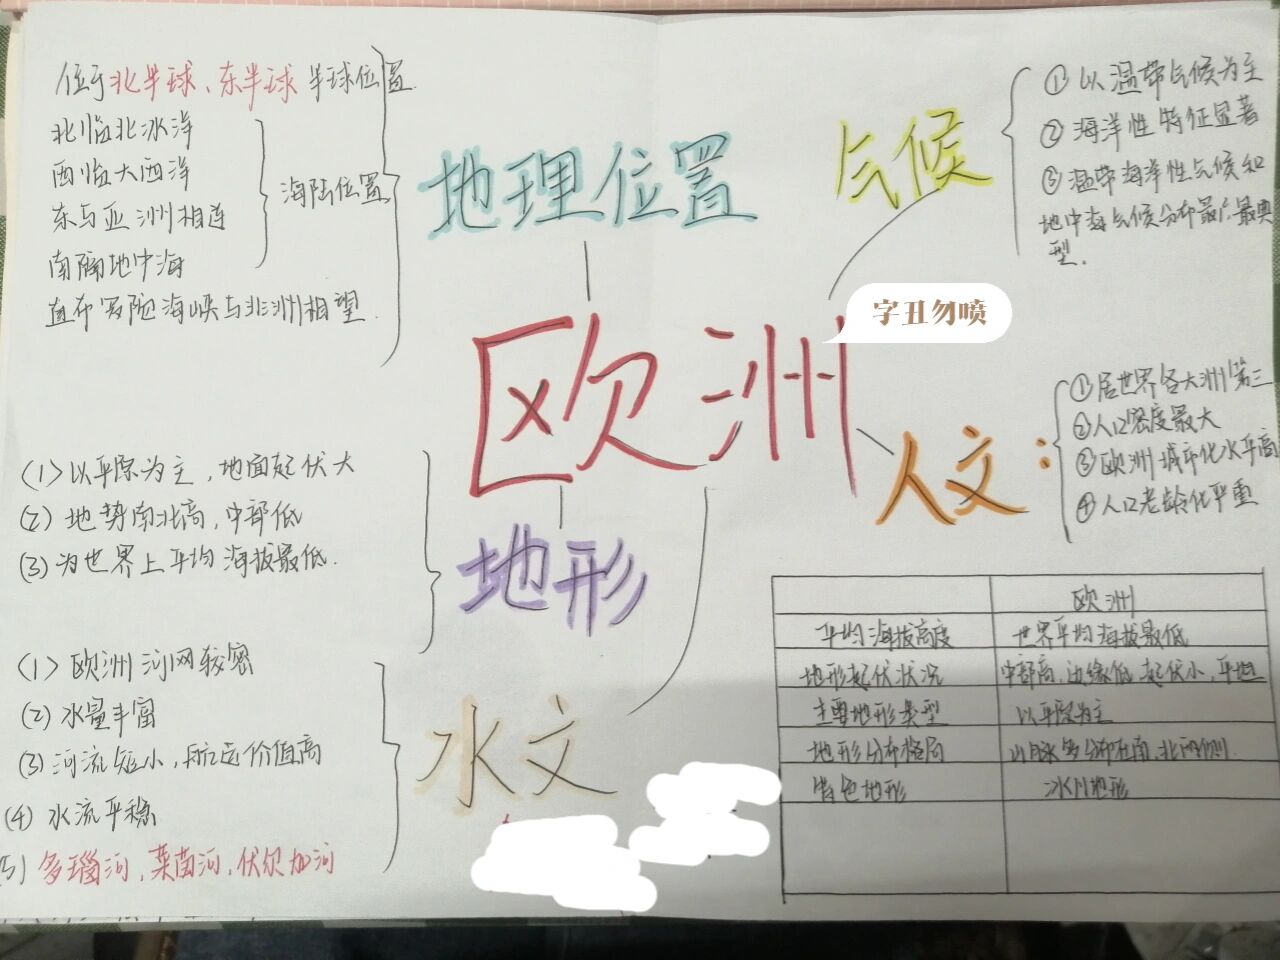 位于北半球、东半球 半球位置
北临北冰洋
西临大西洋
东与亚洲相连
南隔地中海
直布罗陀海峡与非洲相望
海陆位置
地理位置
气候
① 以温带气候为主
② 海洋性特征显著
③ 温带海洋性气候和
地中海气候分布最广最典
型.
字丑勿喷
欧洲
人文:
①居世界各大洲第三
②人口密度最大
③欧洲城市化水平高
④人口老龄化严重
(1)以平原为主,地面起伏大
(2) 地势南北高,中部低
(3) 为世界上平均海拔最低.
地形
(1) 欧洲河网较密
(2) 水量丰富
(3) 河流短小,航运价值高
(4) 水流平稳
5) 多瑙河,莱茵河,伏尔加河
水文
欧洲
平均海拔高度 世界平均海拔最低
地形起伏状况 中部高,边缘低 起伏小,平坦
主要地形类型 以平原为主
地形分布格局 山脉多分布在南、北两侧
特色地形 冰川地形